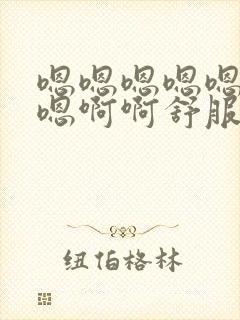 嗯嗯嗯嗯嗯
嗯啊啊舒服
纽伯格林